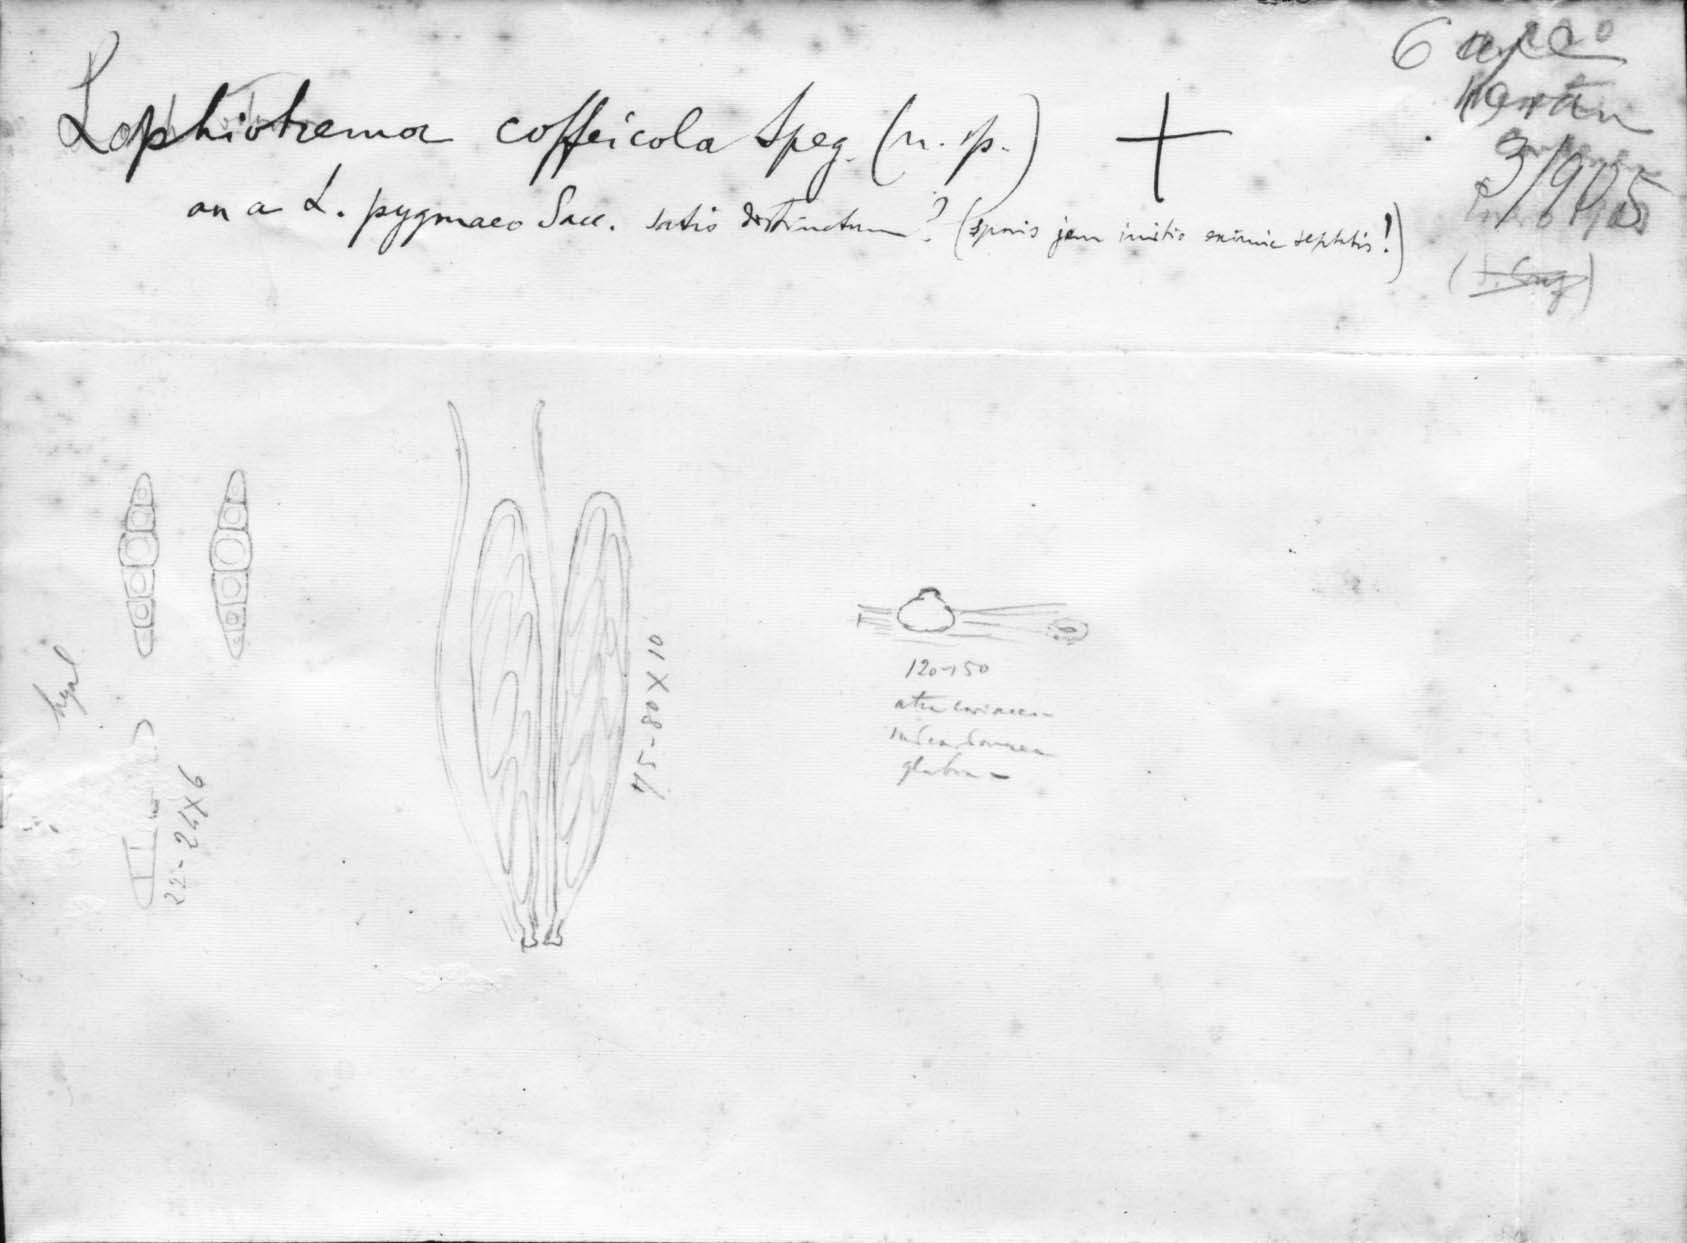 Lophiotrema coffeicola Speg. (n. sp.) +
an a L. pygmaeo Sacc. satis distinctum? (sporis jam initio eximie septatis!)
6
3/905
hyal
22-24X6
75-80X10
120-150
atra coriacea
glabra